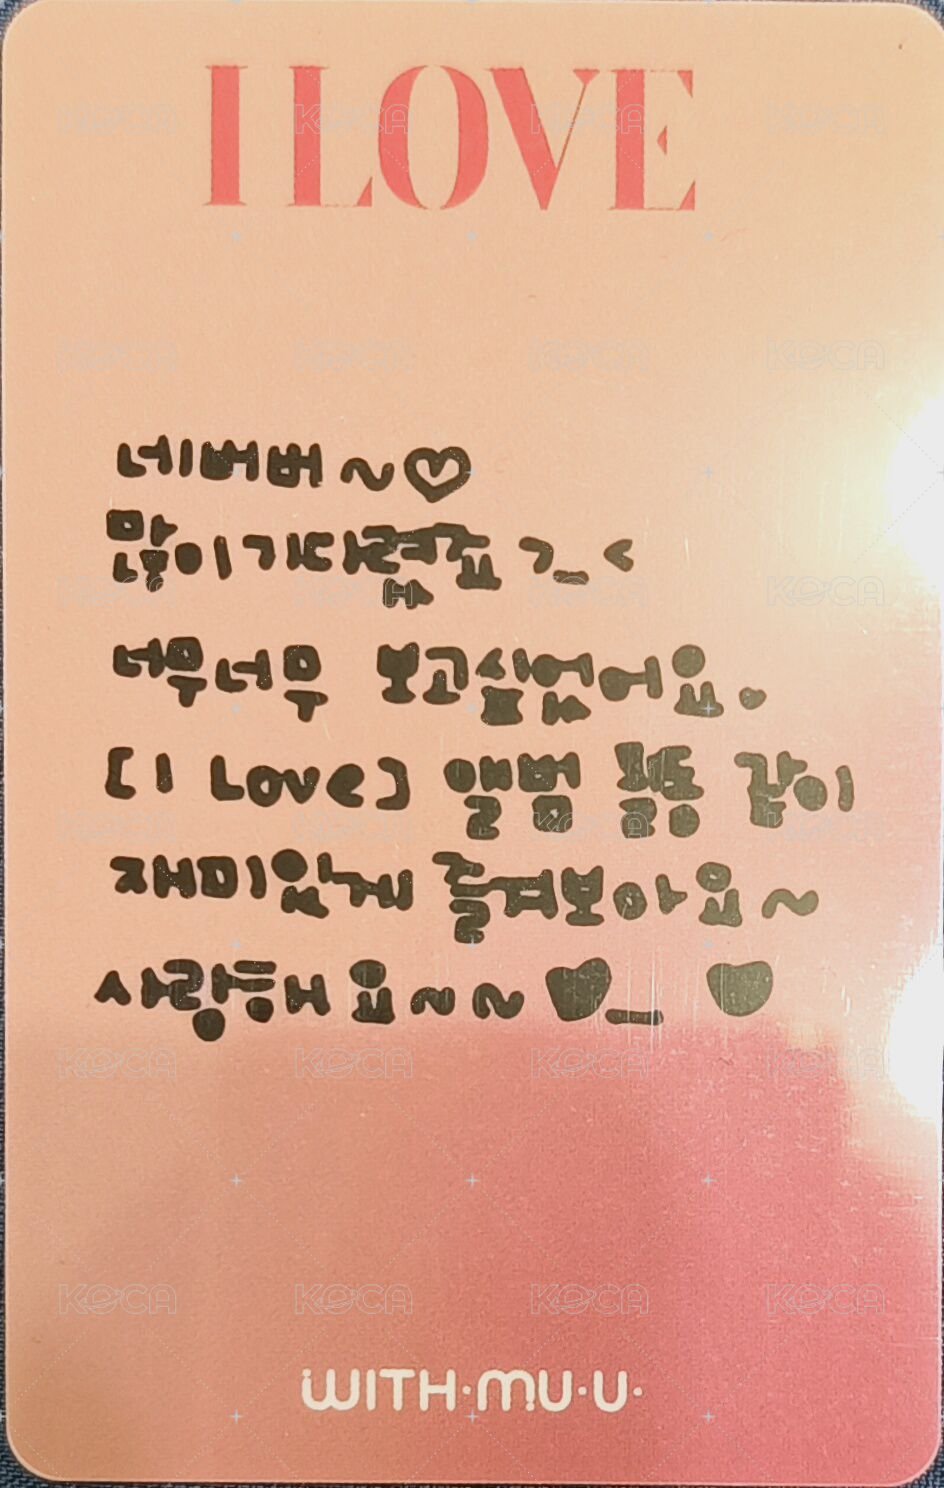 I LOVE
네버버~♡
많이 기다렸죠 >_<
너무너무 보고싶었어요.
[I Love] 앨범 활동 같이
재미있게 즐겨보아요~
사랑해요~~♥_♥
WITH·MU·U·
KOCA